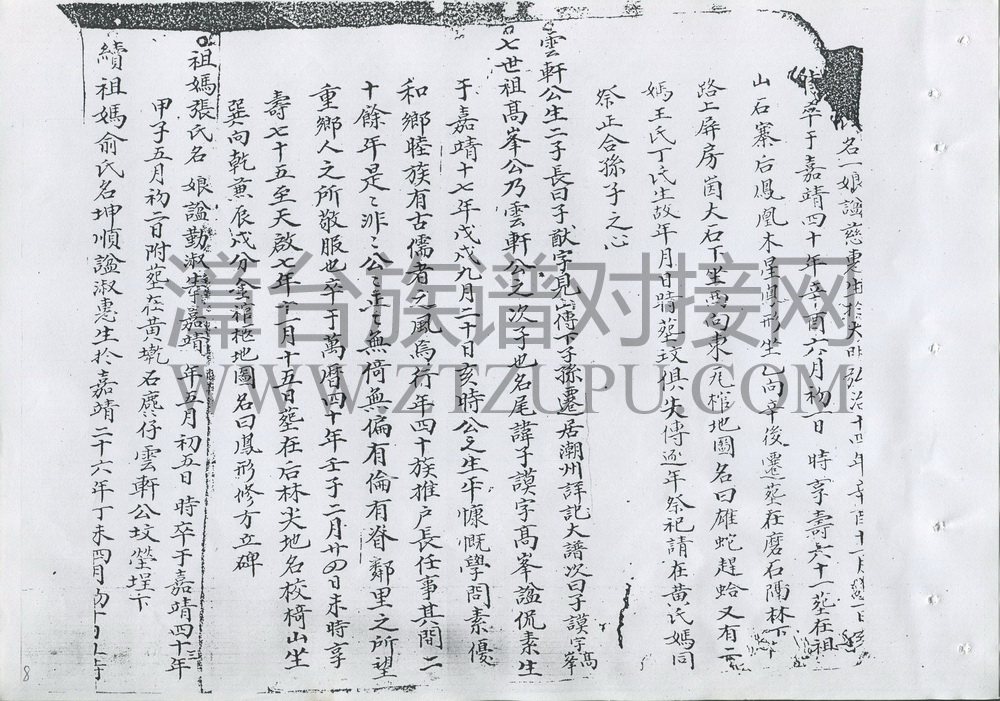 名一娘諡慈惠生於大明弘治十四年辛酉十一月
卒于嘉靖四十年辛酉六月初一日 時享壽六十一葬在祖
山石寨后鳳凰木星與形坐乙向辛後遷葬在磨石隔林下
路上屏房茵大石下坐酉向東 地圖名曰雄蛇趕蛤又有二
媽王氏丁氏生故年月日時葬墳俱失傳逐年祭祀請在黃氏媽同
祭正合孫子之心
雲軒公生二子長曰子猷字見山傳下子孫遷居潮州詳記大譜次曰子謨字高峯
七世祖高峯公乃雲軒公之次子也名尾諱子謨字高峯諡侃素生
于嘉靖十七年戊戌九月二十日亥時公之生平慷慨學問素優
和鄉睦族有古儒者之風焉行年四十族推戶長任事其間二
十餘年是〻非〻公〻正〻無倚無偏有倫有脊鄰里之所望
重鄉人之所敬服也卒于萬曆四十年壬子二月廿四日未時享
壽七十五至天啟七年十二月十五日葬在后林尖地名校椅山坐
巽向乾兼辰戌分金 地圖名曰鳳形修方立碑
祖媽張氏名 娘諡勤淑生嘉靖 年五月初五日 時卒于嘉靖四十三年
甲子五月初二日附葬在黃墘石鹿仔雲軒公墳塋埕下
續祖媽俞氏名坤順諡淑惠生於嘉靖二十六年丁未四月初十日
漳台族谱对接网
WWW.ZTZUPU.COM
8